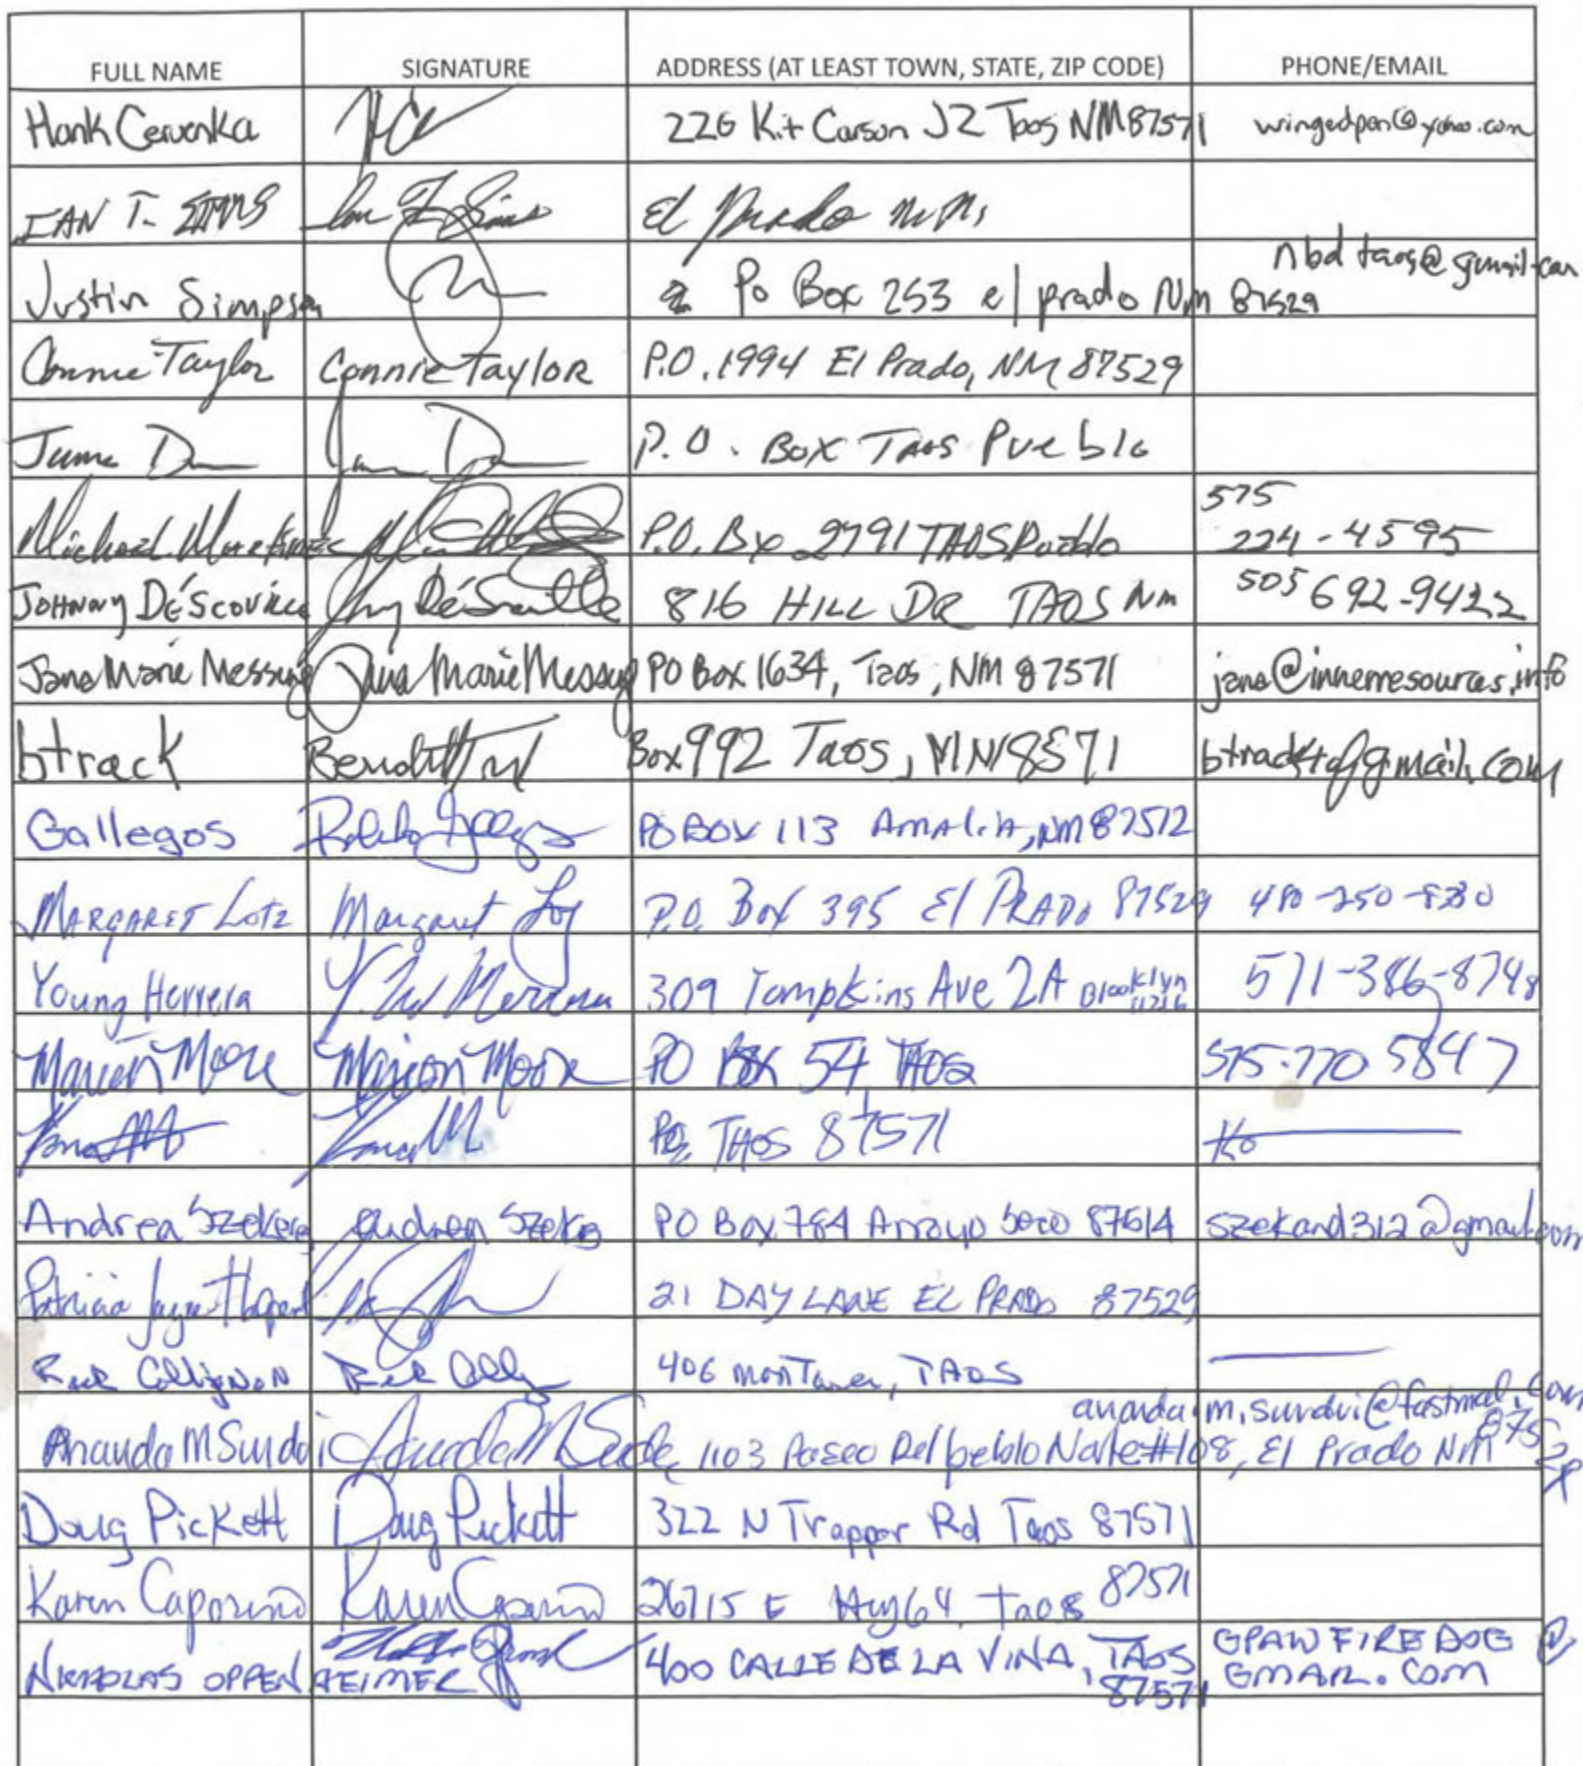 FULL NAME SIGNATURE ADDRESS (AT LEAST TOWN, STATE, ZIP CODE) PHONE/EMAIL
Hank Cervenka HC 226 Kit Carson J2 Taos NM 87571 wingedpan@yahoo.com
IAN T. SIMMS Ian T. Sims El Prado N.M.
Justin Simpson Po Box 253 el prado Nm 87529 nbdtaos@gmail.com
Connie Taylor Connie Taylor P.O. 1994 El Prado, NM 87529
June D P.O. Box Taos Pueblo
Michael Martinez P.O. Bx 2791 TAOS Pueblo 575 224-4595
JOHNNY DÉSCOVILLE 816 HILL DR TAOS NM 505 692-9422
Jana Marie Messing Jana Marie Messing PO Box 1634, Taos, NM 87571 jana@innerresources.info
btrack Box 992 Taos, 8571
Gallegos PO BOX 113 Amalia, NM 87512
MARGARET LOTZ Margaret P.O. Box 395 El PRADO 87529
Young Herrera 309 Tompkins Ave 2A Brooklyn 11216 571-386-8748
Marion Moore Marion Moore PO Box 54 TAOS 575-770 5847
PO TAOS 87571
Andrea Szekeres Andrea PO Box 784 Arroyo Seco 87514 szekand312@gmail.com
Patricia 21 DAY LANE EL PRADO 87529
Rick Collignon 406 TAOS
ananda.m.surdvi@fastmail.com
Ananda M Surdvi 1103 Paseo Del pueblo Norte #108, El Prado NM 87529
Doug Pickett Doug Pickett 322 N Trapper Rd Taos 87571
Karen Caporino Karen Caporino 26715 E Hwy 64 Taos 87571
NICHOLAS OPPENHEIMER 400 CALLE DE LA VINA, TAOS 87571 GPAWFIREDOG @ GMAIL.COM